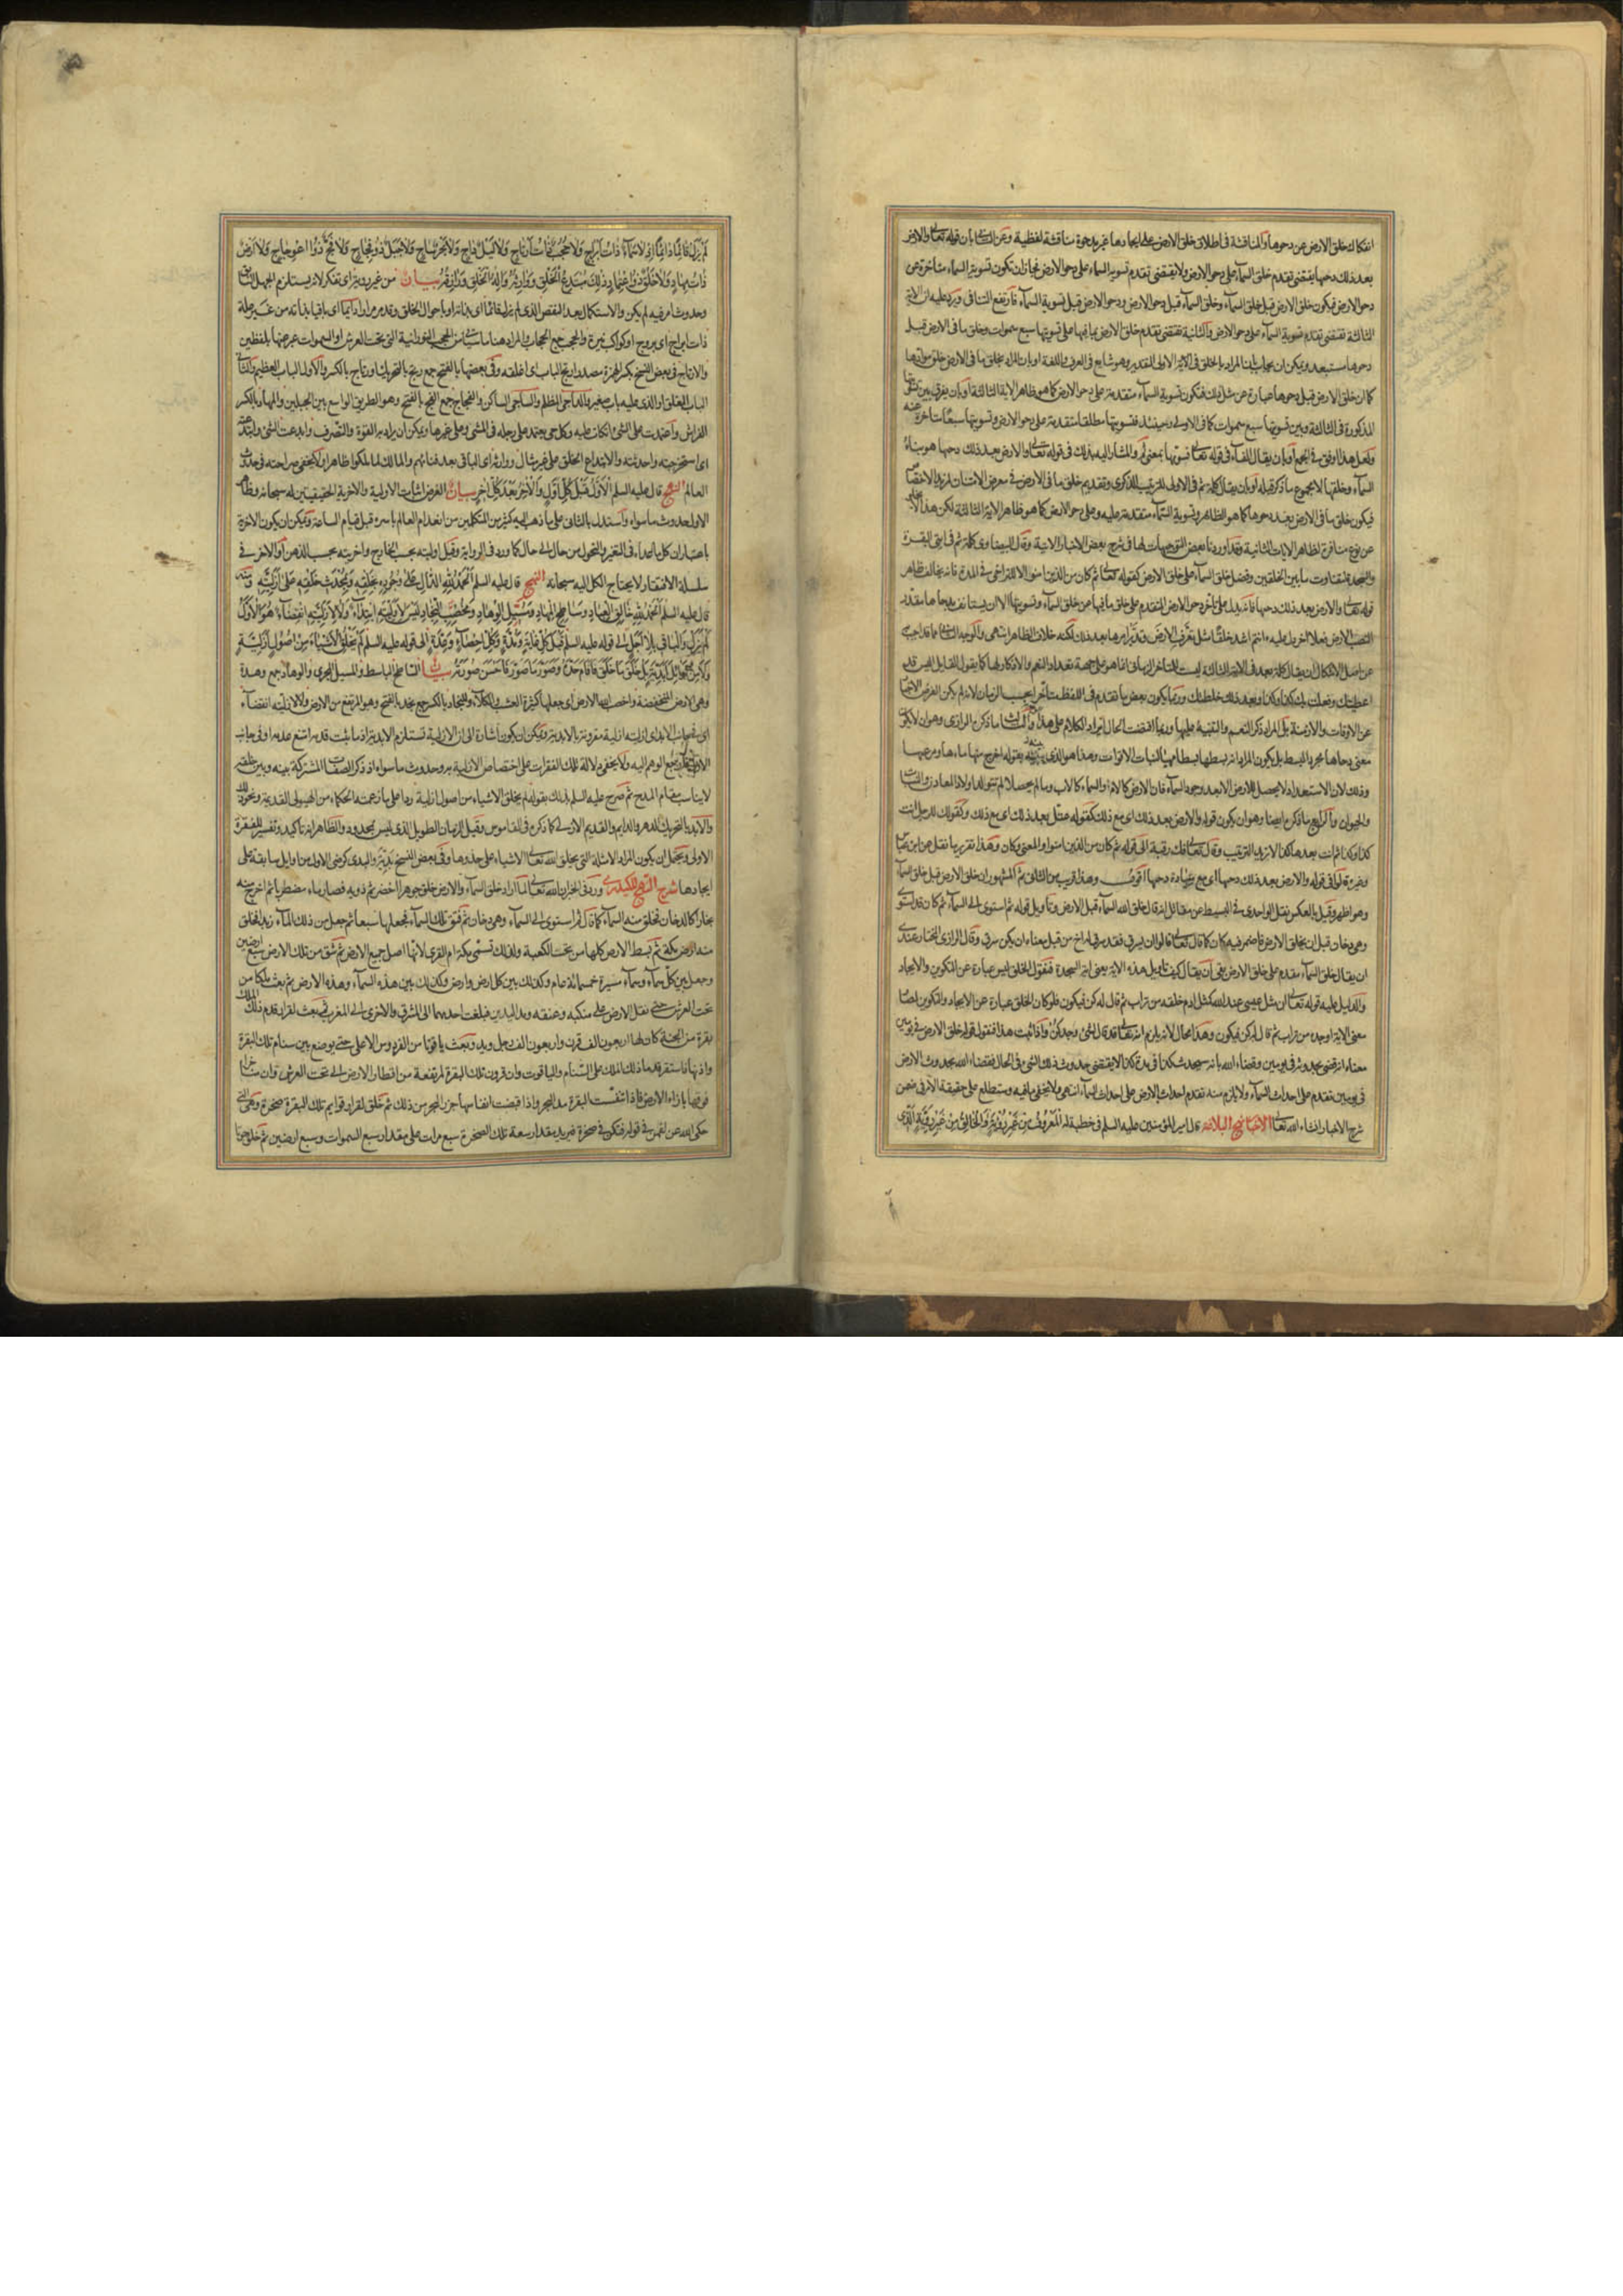 انفكاك خلق الارض عن دحوها والمناقشة فى اطلاق خلق الارض على ايجادها غير مدحوة مناقشة لفظية وعن الثانى بان قوله تعالى والارض
بعد ذلك دحيها يقتضى تقدم خلق السماء على دحو الارض ولا يقتضى تقدم تسوية السماء على دحو الارض فجاز ان تكون تسوية السماء متأخرة عن
دحو الارض فيكون خلق الارض قبل خلق السماء وخلق السماء قبل دحو الارض ودحو الارض قبل تسوية السماء فارتفع التنافى ويرد عليه ان الاية
الثالثة تقتضى تقدم تسوية السماء على دحو الارض والثانية تقتضى تقدم خلق الارض بما فيها على تسويتها سبع سموات وخلق ما فى الارض قبل
دحوها مستبعد ويمكن ان يجاب بان المراد بالخلق فى الاية الاولى التقدير وهو شايع فى العرف واللغة او بان المراد بخلق ما فى الارض خلق موادها
كما ان خلق الارض قبل دحوها عبارة عن مثل ذلك فتكون تسوية السماء متقدمة على دحو الارض كما هو ظاهر الاية الثالثة او بان يفرق بين تسويتها
المذكورة فى الثالثة وبين تسويتها سبع سموات كما فى الاولى وحينئذ فتسويتها مطلقا متقدمة على دحو الارض وتسويتها سبعا متاخرة عنه
ولعل هذا اوفق فى الجمع او بان يقال الفاء فى قوله تعالى فسويها بمعنى ثم والمشار اليه بذلك فى قوله تعالى والارض بعد ذلك دحيها هو بناء
السماء وخلقها لا مجموع ما ذكر قبله او بان يقال كلمة ثم فى الاولى للترتيب الذكرى وتقديم خلق ما فى الارض فى معرض الامتنان لمزيد الاختصاص
فيكون خلق ما فى الارض بعد دحوها كما هو الظاهر وتسوية السماء متقدمة عليه وعلى دحو الارض كما هو ظاهر الاية الثالثة لكن هذا لا يخلو
عن نوع منافرة لظاهر الايات الثانية وقد اوردنا بعض التوجيهات لها فى شرح بعض الاخبار الاتية وقال البيضاوى كلمة ثم فى ايتى البقرة
والسجدة لتفاوت ما بين الخلقين وفضل خلق السماء على خلق الارض كقوله تعالى ثم كان من الذين امنوا لا للتراخى فى المدة فانه يخالف ظاهر
قوله تعالى والارض بعد ذلك دحيها فانه يدل على تأخر دحو الارض المتقدم على خلق ما فيها عن خلق السماء وتسويتها الا ان يستانف بدحاها مقدرا
لنصب الارض فعلا اخر دل عليه ءانتم اشد خلقا مثل تعرف الارض وتدبر امرها بعد ذلك لكنه خلاف الظاهر انتهى والوجه الثانى مما قد اجيب
عن اصل الاشكال ان يقال كلمة بعد فى الاية الثالثة ليست للتاخر الزمانى انما هو على جهة تعداد النعم والاذكار لها كما يقول القايل اليس قد
اعطيتك وفعلت بك كذا وكذا وبعد ذلك خلطتك وربما يكون بعض ما تقدم فى اللفظ متاخرا بحسب الزمان لانه لم يكن الغرض الاخبار
عن الاوقات والازمنة بل المراد ذكر النعم والتنبيه عليها وربما اقتضت الحال ايراد الكلام على هذا والثالث ما ذكره الرازى وهو ان لا يكون
معنى دحاها مجرد البسط بل يكون المراد انه بسطها بسطا مهيأ لنبات الاقوات وهذا هو الذى بينه بقوله اخرج منها ماءها ومرعيها
وذلك لان الاستعداد لا يحصل للارض الا بعد وجود السماء فان الارض كالام والسماء كالاب وما لم يحصلا لم تتولد اولاد المعادن والنبات
والحيوان والرابع ما ذكره ايضا وهو ان يكون قوله والارض بعد ذلك اى مع ذلك كقوله عتل بعد ذلك اى مع ذلك وكقولك للرجل انت
كذا وكذا ثم انت بعدها كذا لا تريد الترتيب وقال تعالى فك رقبة الى قوله ثم كان من الذين امنوا والمعنى وكان وهذا تقرير ما نقل عن ابن عباس
وغيره قالوا فى قوله والارض بعد ذلك دحيها اى مع ذلك دحيها اقول وهذا قريب من الثانى ثم المشهور ان خلق الارض قبل خلق السماء
وهو اظهر وقيل بالعكس نقل الواحدى فى البسيط عن مقاتل انه قال خلق الله السماء قبل الارض وتأويل قوله ثم استوى الى السماء ثم كان قد استوى
وهى دخان قبل ان يخلق الارض فاضمر فيه كان كما قال تعالى قالوا ان يسرق فقد سرق اخ من قبل معناه ان يكن سرق وقال الرازى المختار عندى
ان يقال خلق السماء مقدم على خلق الارض بقى ان يقال كيف تاويل هذه الاية يعنى اية السجدة فنقول الخلق ليس عبارة عن التكوين والايجاد
والدليل عليه قوله تعالى ان مثل عيسى عند الله كمثل ادم خلقه من تراب ثم قال له كن فيكون فلو كان الخلق عبارة عن الايجاد والتكوين لصار
معنى الاية اوجده من تراب ثم قال له كن فيكون وهذا محال لانه يلزم انه تعالى قد قال لشئ وجد كن واذا ثبت هذا فنقول قوله خلق الارض فى يومين
معناه انه قضى بحدوثه فى يومين وقضاء الله بانه سيحدث كذا فى مدة كذا لا يقتضى حدوث ذلك الشئ فى الحال فقضاء الله بحدوث الارض
فى يومين تقدم على احداث السماء ولا يلزم منه تقدم احداث الارض على احداث السماء انتهى ولا يخفى ما فيه وستطلع على حقيقة الامر فى ضمن
شرح الاخبار انشاء الله تعالى الاخبار نهج البلاغة قال امير المؤمنين عليه السلم فى خطبة له المعروف من غير رؤية والخالق من غير روية الذى
لم يزل قائما دائما اذ لا سماء ذات ابراج ولا حجب ذات ارتاج ولا ليل داج ولا بحر ساج ولا جبل ذو فجاج ولا فج ذو اعوجاج ولا ارض
ذات مهاد ولا خلق ذو اعتماد ذلك مبتدع الخلق ووارثه واله الخلق ورازقه بيان من غير روية اى تفكر لانه يستلزم الجهل السابق
وحدوث امر فيه لم يكن والاستكمال بعد النقص الذى لم يزل قائما اى بذاته او باحوال الخلق وقد مر مرارا دائما اى باقيا بذاته من غير علة
ذات ابراج اى بروج او كواكب نيرة والحجب جمع الحجاب والمراد هنا ما سيأتى من الحجب النورانية التى تحت العرش او السموات عبر عنها بلفظين
والارتاج فى بعض النسخ بكسر الهمزة مصدر ارتج الباب اى اغلقه وفى بعضها بالفتح جمع رتج بالتحريك او رتاج بالكسر والاول الباب العظيم والثانى
الباب المغلق او الذى عليه باب صغير والداجى المظلم والساجى الساكن والفجاج جمع الفج بالفتح وهو الطريق الواسع بين الجبلين والمهاد بالكسر
الفراش واعتمدت على الشئ اتكأت عليه وكل حى يعتمد على رجله فى المشى وعلى غيرها ويمكن ان يراد به القوة والتصرف وابدعت الشئ وابتدعته
اى استخرجته واحدثته والابتداع الخلق على غير مثال ووارثه اى الباقى بعد فنائهم والمالك لما ملكوا ظاهرا ولا يخفى صراحته فى حدوث
العالم النهج قال عليه السلم الاول قبل كل اول والاخر بعد كل اخر بيان الغرض اثبات الاولية والاخرية الحقيقيتين له سبحانه وظاهر
الاول حدوث ما سواه واستدل بالثانى على ما ذهب اليه كثير من المتكلمين من انعدام العالم باسره قبل قيام الساعة ويمكن ان يكون الاخرية
باعتبار ان كل ما عداه فى التغير والتحول من حال الى حال كما ورد فى الرواية وقيل اوليته بحسب الخارج واخريته بحسب الذهن او الاخر فى
سلسلة الافتقار لاحتياج الكل اليه سبحانه النهج قال عليه السلم الحمد لله الدال على وجوده بخلقه وبمحدث خلقه على ازليته ومنه
قال عليه السلم الحمد لله خالق العباد وساطح المهاد ومسيل الوهاد ومخصب النجاد ليس لاوليته ابتداء ولا لازليته انقضاء هو الاول
لم يزل والباقى بلا اجل الى قوله عليه السلم قبل كل غاية ومدة وكل احصاء وعدة الى قوله عليه السلم لم يخلق الاشياء من اصول ازلية
ولا من اوائل ابدية بل خلق ما خلق فاقام حده وصور ما صور فاحسن صورته بيان الساطح الباسط والمسيل المجرى والوهاد جمع وهدة
وهى الارض المنخفضة واخصب الله الارض اى جعلها كثيرة العشب والكلاء والنجاد بالكسر جمع نجد بالفتح وهو المرتفع من الارض ولا لازليته انقضاء
اى فى جانب الابد اى ازليته ازلية مقرونة بالابدية ويمكن ان يكون اشارة الى ان الازلية تستلزم الابدية اذ ما ثبت قدمه امتنع عدمه او فى جانب
الازل اذا رجع الوهم اليه ولا يخفى دلالة تلك الفقرات على اختصاص الازلية به وحدوث ما سواه اذ ذكر الصفات المشتركة بينه وبين خلقه
لا يناسب مقام المدح ثم صرح عليه السلم بذلك بقوله لم يخلق الاشياء من اصول ازلية ردا على ما زعمته الحكماء من الهيولى القديمة ونحو ذلك
والابد بالتحريك الدهر والدايم والقديم الازلى كما ذكره فى القاموس وقيل الزمان الطويل الذى ليس بمحدود والظاهر انه تاكيد وتفسير للفقرة
الاولى ويحتمل ان يكون المراد الامثلة التى يخلق الله تعالى الاشياء على حذوها وفى بعض النسخ بدية والبدى كرضى الاول من اوايل سابقة على
ايجادها شرح النهج للكيدرى ورد فى الخبر ان الله تعالى لما اراد خلق السماء والارض خلق جوهرا اخضر ثم ذوبه فصار ماء مضطربا ثم اخرج منه
بخارا كالدخان فخلق منه السماء كما قال ثم استوى الى السماء وهى دخان ثم فتق تلك السماء فجعلها سبعا ثم جعل من ذلك الماء زبدا فخلق
منه ارض مكة ثم بسط الارض كلها من تحت الكعبة ولذلك تسمى مكة ام القرى لانها اصل جميع الارض ثم شق من تلك الارض سبع ارضين
وجعل بين كل سماء وسماء مسيرة خمسمائة عام وكذلك بين كل ارض وارض وكذلك بين هذه السماء وهذه الارض ثم بعث ملكا من
تحت العرش حتى نقل الارض على منكبه وعنقه ومد اليدين فبلغت احديهما الى المشرق والاخرى الى المغرب ثم بعث لقرار قدم ذلك الملك
بقرة من الجنة كان لها اربعون الف قرن واربعون الف رجل ويد وبعث ياقوتا من الفردوس الاعلى حتى يوضع بين سنام تلك البقرة
واذنها فاستقر قدما ذلك الملك على السنام والياقوت وان قرون تلك البقرة لمرتفعة من اقطار الارض الى تحت العرش وان مناخر
انوفها بازاء الارض فاذا تنفست البقرة مد البحر واذا قبضت انفاسها جزر البحر من ذلك ثم خلق لقرار قوايم تلك البقرة صخرة وهى التى
حكى الله عن لقمن فى قوله فتكن فى صخرة فيزيد مقدار سعة تلك الصخرة سبع مرات على مقدار سبع السموات وسبع ارضين ثم خلق حوتا